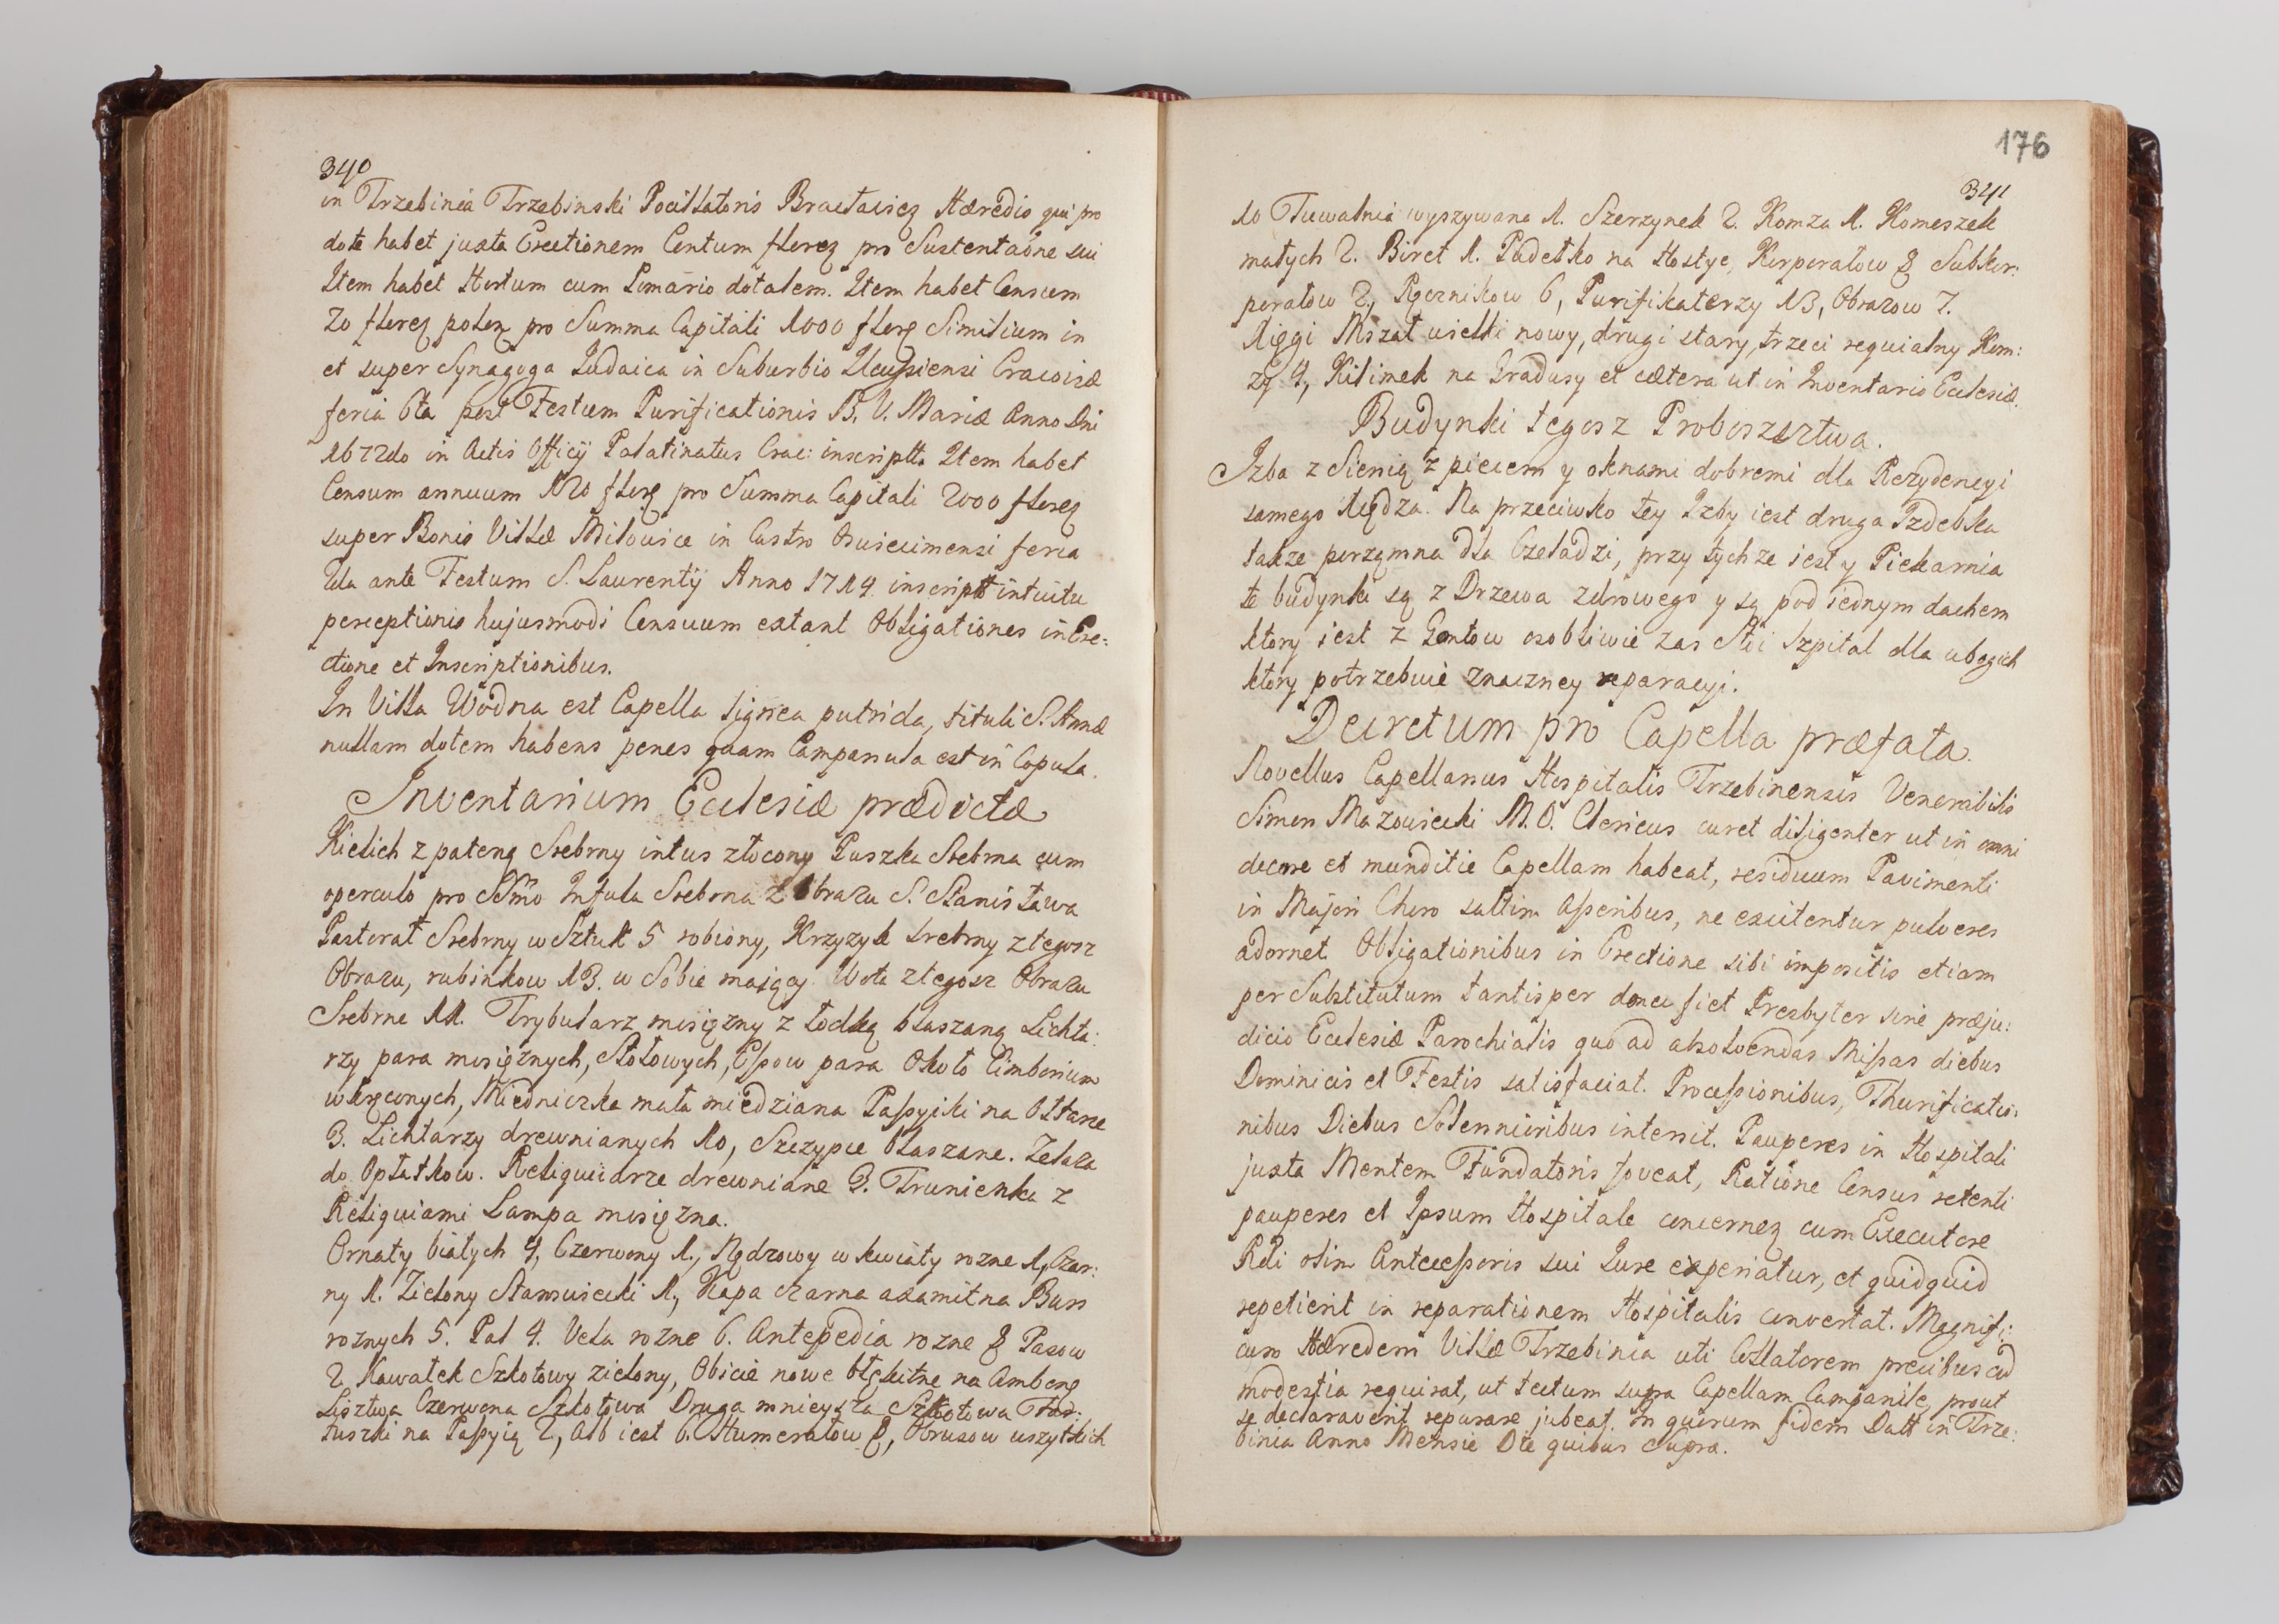 340
in Trzebinia Trzebinski Pocillatoris Braclavieȝ Hæredis qui pro
dote habet juxta Erectionem Centum floreȝ pro Sustentaōne sui
Item habet Hortum cum Pomario dotalem. Item habet Censum
70 floreȝ poloȝ pro Summa Capitali 1000 florȝ Similium in
et super Synagoga Judaica in Suburbio Ilcusiensi Cracoviæ
feria 6ta post Festum Purificationis B. V. Mariæ Anno Dni
1672do in Actis Officÿ Palatinatus Crac: inscriptt. Item habet
Censum annuum 120 florȝ pro Summa Capitali 2000 floreȝ
super Bonis Villæ Milowice in Castro Osviecimensi feria
2da ante Festum S. Laurentÿ Anno 1714 inscriptt intuitu
perceptionis hujusmodi Censuum extant Obligationes in Ere:
ctione et Inscriptionibus.
In Villa Wodna est Capella lignea putrida, tituli S. Annæ
nullam dotem habens penes quam Campanula est in Copula.
Inventarium Eclesiæ prædictæ
Kielich z pateną Srebrny intus złocony Puszka Srebrna cum
operculo pro SSmo Infuła Srebrna z Obrazu S. Stanisława
Pastorał Srebrny w Sztuk 5 robiony, Krzyzyk srebrny z tegosz
Obrazu, rubinkow 13. w Sobie maiący Wota z tegosz Obrazu
Srebrne 11. Trybularz mosięzny z łodką blaszaną Lichta:
rzy para mosięznych, Stołowych, Essow para Około Cimborium
wkręconych, Miedniczka mała miedziana Passyiki na Ołtarze
3. Lichtarzy drewnianych 10, Szczypce blaszane. Zelaza
do Opłatkow. Reliquiarze drewniane 3. Trunienka z
Reliquiami Lampa mosięzna.
Ornaty białych 4, Czerwony 1., Rądzowy w kwiaty rozne 1, Czar:
ny 1. Zielony Stamsiecki 1, Kapa czarna axamitna Burs
roznych 5. Pal 4. Vela rozne 6. Antepedia rozne 8 Pasow
2 Kawałek Szkotowy zielony, Obicie nowe błękitne na Ambonę
Lisztwa Czerwona Szkotowa Druga mnieysza Szkotowa Pod:
tuszki na Passyią 2, Alb iest 6. Humerałow 8, Obrusow wszytkich
176
341
10 Tuwalnia wyszywana 1. Szerzynek 2. Komza 1. Komeszek
małych 2. Biret 1. Pudełko na Hostye, Korporałow 8 Subkor:
porałow 2, Ręcznikow 6, Purifikaterzy 13, Obrazow 7.
Xięgi Mszał wielki nowy, drugi stary, trzeci requialny Kom:
zy 4, Kilimek na Gradusy et cætera ut in Inventario Eclesiæ.
Budynki tegosz Proboszcztwa.
Izba z Sienią z piecem y oknami dobremi dla Rezydencyi
samego Xiędza. Na przeciwko tey Izby iest druga Izdebka
takze porzęmna dla Czeladzi, przy tychze iest y Piekarnia
te budynki są z Drzewa zdrowego y są pod iednym dachem
ktory iest z Gontow osobliwie zas Stoi Szpital dla ubogich
ktory potrzebuie znaczney reparacyi.
Decretum pro Capella præfata.
Novellus Capellanus Hospitalis Trzebinensis Venerabilis
Simon Mazowiecki M. O. Clericus curet diligenter ut in omni
decore et munditie Capellam habeat, residuum Pavimenti
in Majori Choro saltim Asseribus, ne excitentur pulveres
adornet. Obligationibus in Erectione sibi impositis etiam
per Substitutum tantisper donec fiet Presbyter sine præju:
dicio Eclesiæ Parochialis quo ad absolvendas Missas diebus
Dominicis et Festis satisfaciat. Processionibus, Thurificatio:
nibus Diebus Solennioribus intersit. Pauperes in Hospitali
juxta Mentem Fundatoris foveat, Ratione Census retenti
pauperes et Ipsum Hospitale concerneȝ cum Executore
Rdi olim Antecessoris sui Jure experiatur, et quidquid
repetierit in reparationem Hospitalis convertat. Magnifi:
cum Hæredem Villæ Trzebinia uti Collatorem precibus ad
modestia requirat, ut tectum supra Capellam Campanile, prout
se declaraverit, reparare jubeat. In quorum fidem Datt in Trze:
binia Anno Mense Die quibus Supra.